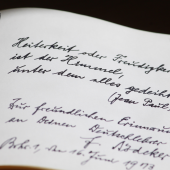 Heiterkeit oder Freudigkeit
ist der Himmel,
unter dem alles gedeiht
(Jean Paul
Zur freundlichen Erinnerung
an Deinen Deutschlehrer
F.
den 16. Juni 19